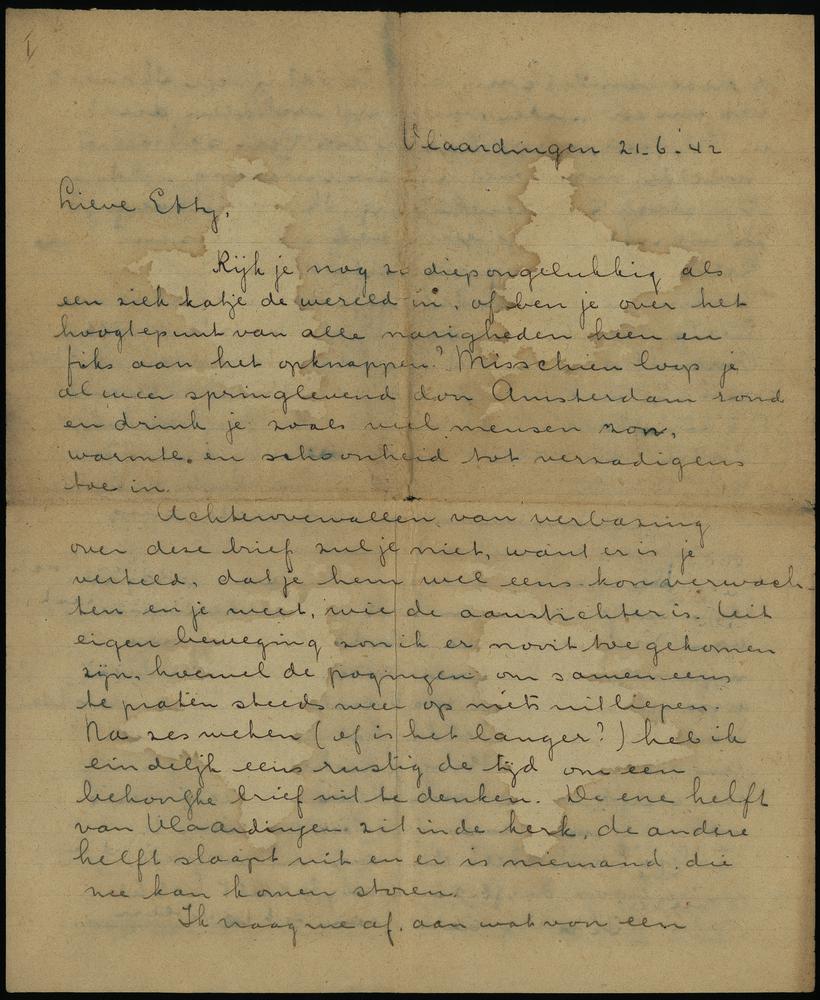 1
Vlaardingen 21-6-'42
Lieve Etty,
Kijk je nog zo diepongelukkig als
een ziek katje de wereld in, of ben je over het
hoogtepunt van alle narigheden heen en
fiks aan het opknappen? Misschien loop je
al weer springlevend door Amsterdam rond
en drink je zoals veel mensen zon,
warmte en schoonheid tot verzadigens
toe in.
Achterovervallen van verbazing
over deze brief zul je niet, want er is je
verteld, dat je hem wel eens kon verwach-
ten en je weet, wie de aanstichter is. Uit
eigen beweging zou ik er nooit toe gekomen
zijn, hoewel de pogingen om samen eens
te praten steeds weer op niets uitliepen.
Na zes weken (of is het langer?) heb ik
eindelijk eens rustig de tijd om een
behoorlijke brief uit te denken. De ene helft
van Vlaardingen zit in de kerk, de andere
helft slaapt uit en er is niemand, die
me kan komen storen.
Ik vraag me af, aan wat voor een